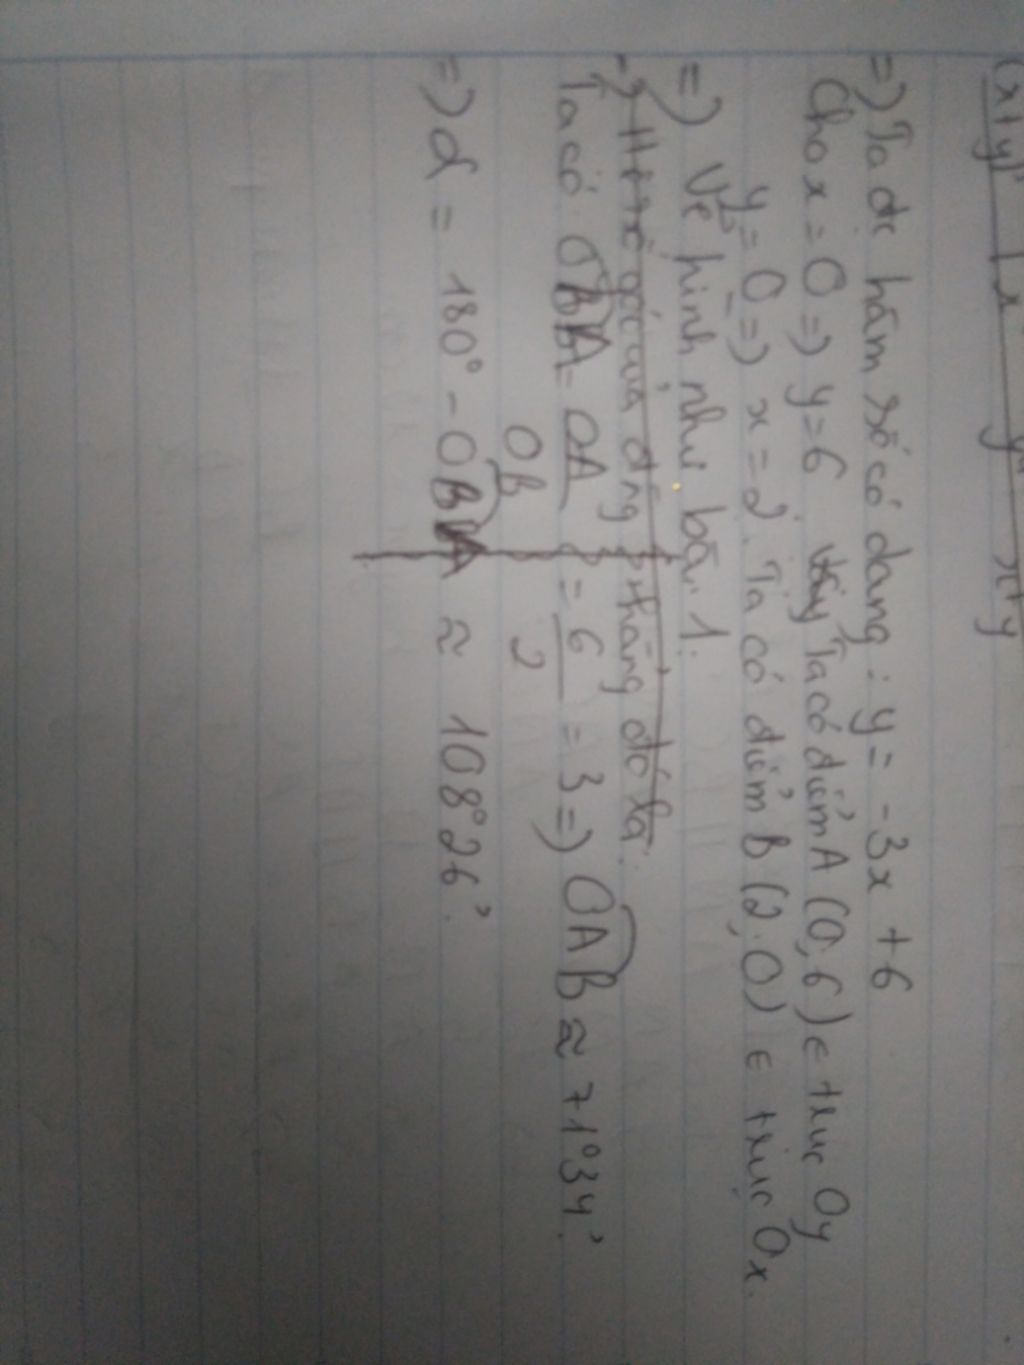 =) Ta đc hàm số có dạng: y = -3x + 6
Cho x = 0 =) y = 6 Vậy Ta có điểm A (0,6) ∈ trục Oy
y = 0 =) x = 2. Ta có điểm B (2,0) ∈ trục Ox.
=) Vẽ hình như bài 1.
góc của đng thẳng đó là:
Ta có: OBA = OA/OB = 6/2 = 3 =) OAB ≈ 71°34'.
=) α = 180° - OBA ≈ 108°26'.